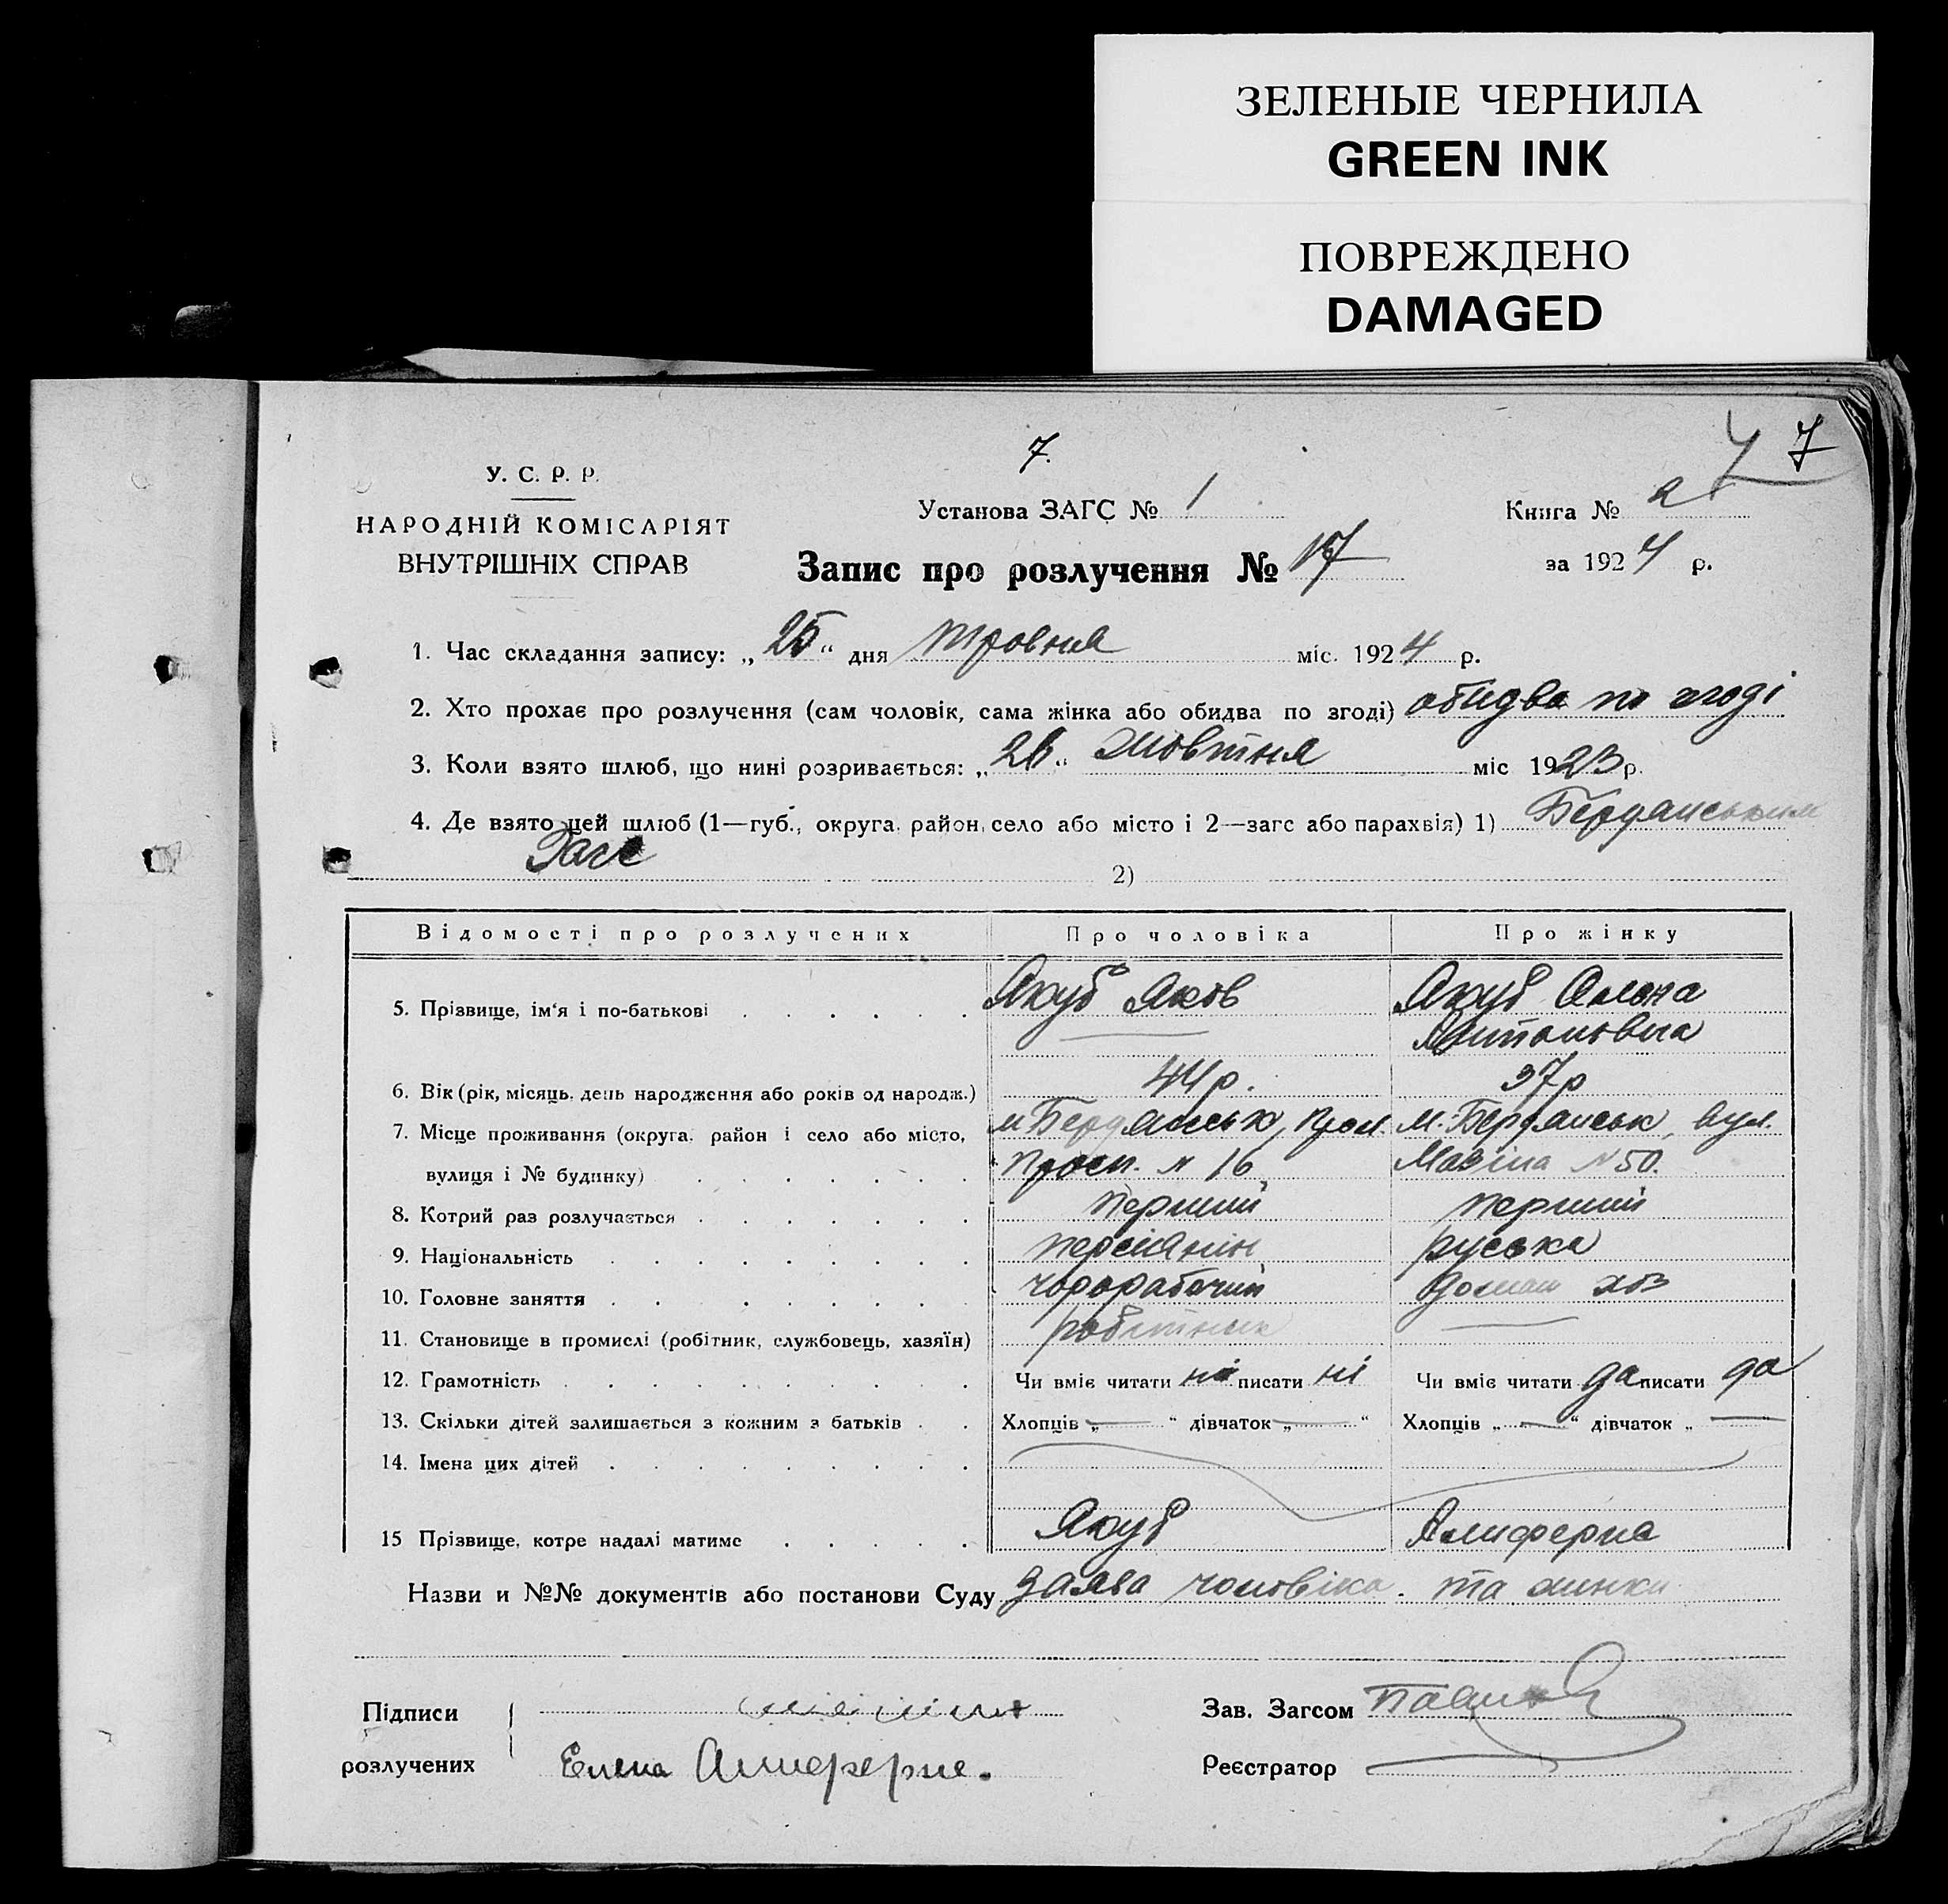 ЗЕЛЕНЫЕ ЧЕРНИЛА
GREEN INK
ПОВРЕЖДЕНО
DAMAGED
7 7
7.
У. С. Р. Р.
НАРОДНІЙ КОМІСАРІЯТ
ВНУТРІШНІХ СПРАВ
Установа ЗАГС № 1
Книга № 2
Запис про розлучення № 17
за 1924 р.
1. Час складання запису: „25“ дня травня міс. 1924 р.
2. Хто прохає про розлучення (сам чоловік, сама жінка або обидва по згоді) обидва по згоді
3. Коли взято шлюб, що нині розривається: „26“ Жовтня міс 1923 р.
4. Де взято цей шлюб (1—губ., округа, район, село або місто і 2—загс або парахвія) 1) Бердянським
Загс 2)
Відомості про розлучених Про чоловіка Про жінку
5. Прізвище, ім'я і по-батькові Якуб Яков Якуб Олена
Антоновна
6. Вік (рік, місяць, день народження або років од народж.) 44 р. 37 р
7. Місце проживання (округа, район і село або місто, м Бердянськ, Прол. м. Бердянськ, вул.
вулиця і № будинку) Просп. № 16 Мазіна № 50.
8. Котрий раз розлучається перший перший
9. Національність персіянін руська
10. Головне заняття чорорабочий домаш хоз
11. Становище в промислі (робітник, службовець, хазяїн) робітник
12. Грамотність Чи вміє читати ні писати ні Чи вміє читати да писати да
13. Скільки дітей залишається з кожним з батьків Хлопців „ — “ дівчаток „ — “ Хлопців „ — “ дівчаток „ —
14. Імена цих дітей
15 Прізвище, котре надалі матиме Якуб Алиферна
Назви и №№ документів або постанови Суду Заява чоловіка та жинки
Підписи
розлучених
Елена Алиферне.
Зав. Загсом
Реєстратор